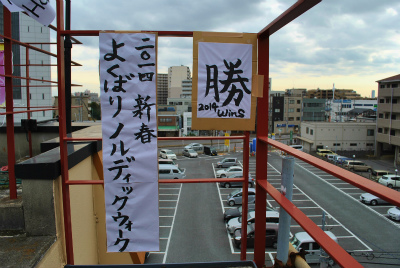 二〇一四 新春
よくばりノルディックウォーク
勝
2014 wins